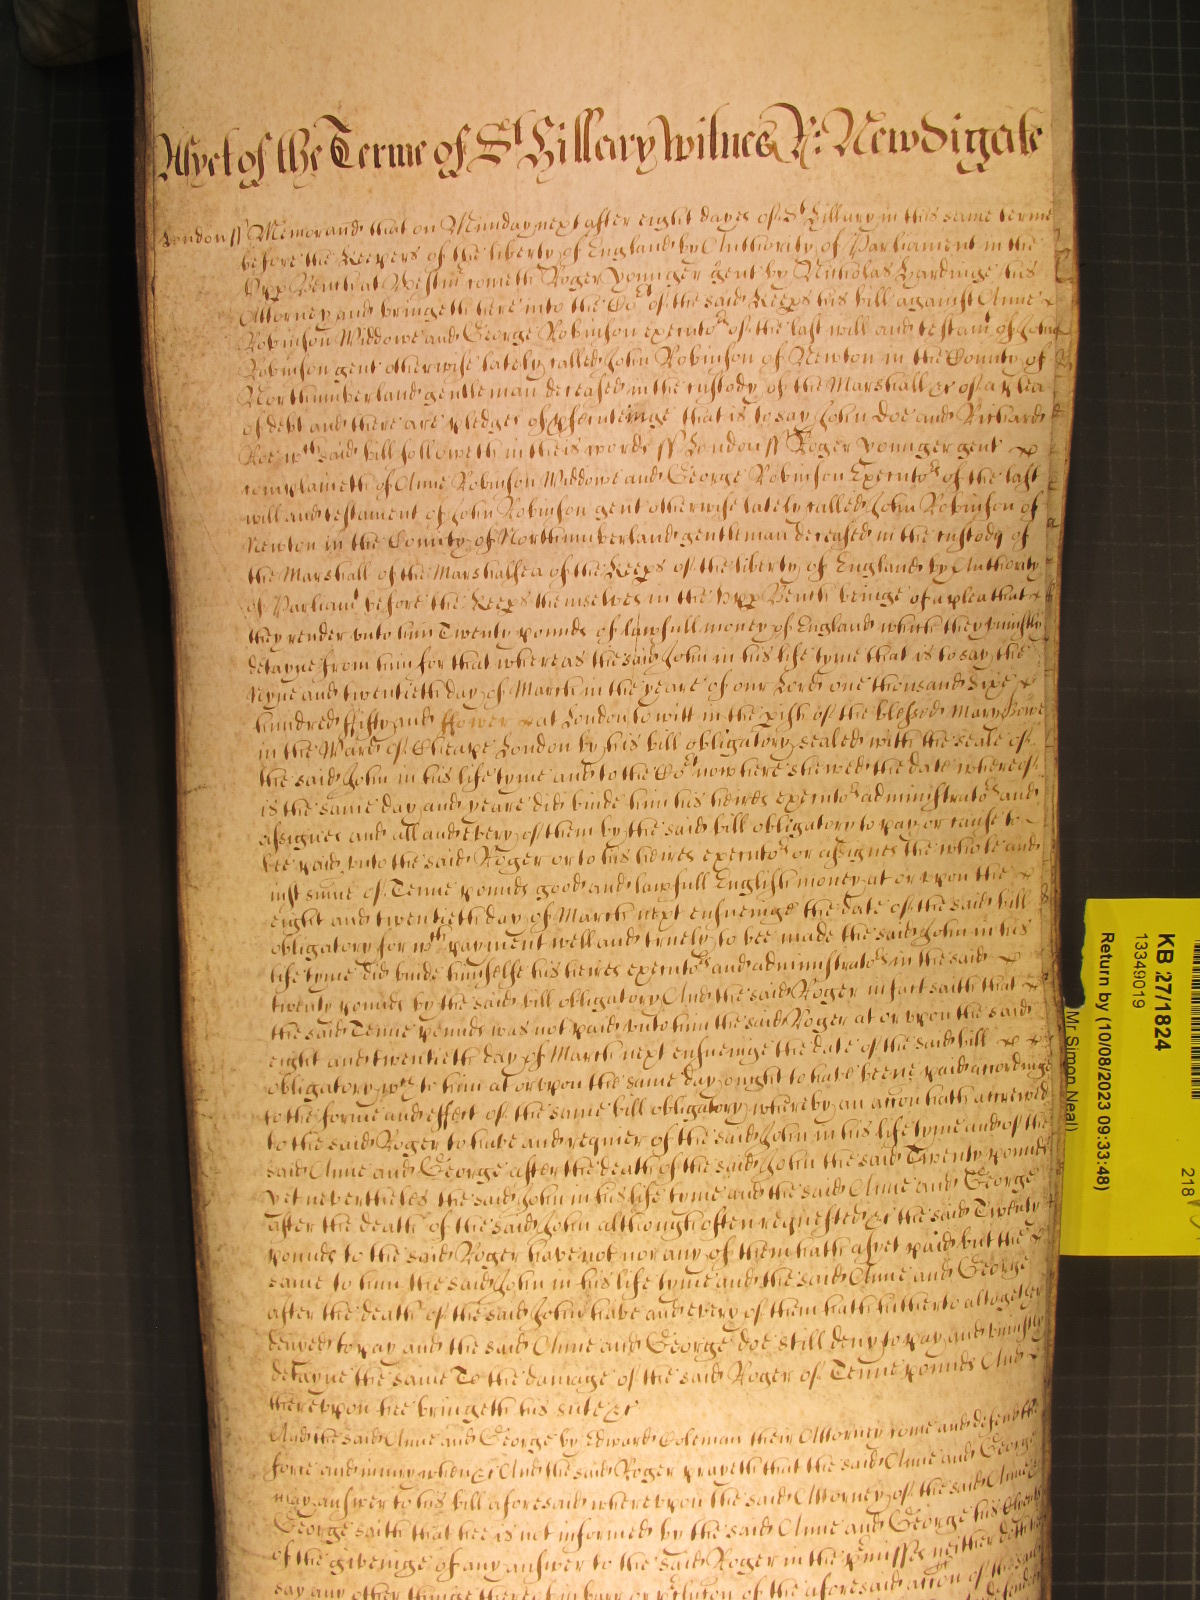 As yet of the Terme of St Hillary witnes R: Newdigate
London ss Memorand that on Munday next after eight dayes of St Hillary in this same terme
before the Keepers of the liberty of England by Authority of Parliament in the
upp Bench at Westm cometh Roger Younger gent by Nicholas Hardinge his
Attorney and bringeth here into the Cort of the said Keeps his bill against Anne
Robinson Widdowe and George Robinson executors of the last will and testamt of John
Robinson gent otherwise lately called John Robinson of Newton in the County of
Northumberland gentleman deceased in the custody of the Marshall &c of a plea
of debt and there are pledges of psecuteinge that is to say John Doe and Richard
Roe wch said bill followeth in theis words ss London ss Roger Younger gent
complaineth of Anne Robinson Widdowe and George Robinson Executors of the last
will and testament of John Robinson gent otherwise lately called John Robinson of
Newton in the County of Northumberland gentleman deceased in the custody of
the Marshall of the Marshalsea of the Keeps of the liberty of England by Authority
of Parliamt before the Keeps themselves in the upp Bench beinge of a plea that
they render unto him Twenty pounds of lawfull money of England which they uniustly
detayne from him for that whereas the said John in his life tyme that is to say the
Nyne and twentieth day of March in the yeare of our Lord one thousand Sixe
hundred ffifty and ffower at London to witt in the pish of the blessed Mary Bowe
in the Ward of Cheape London by his bill obligatory sealed with the seale of
the said John in his life tyme and to the Cort now here shewed the date whereof
is the same day and yeare did binde him his heires executors administrators and
assignes and all and every of them by the said bill obligatory to pay or cause to
bee paid unto the said Roger or to his heires executors or assignes the whole and
iust sume of Tenne pounds good and lawfull English money at or upon the
eight and twentieth day of March next ensueinge the date of the said bill
obligatory for wch payment well and truely to bee made the said John in his
life tyme did binde himselfe his heires executors and administrators in the said
twenty pounds by the said bill obligatory And the said Roger in fact saith that
the said Tenne pounds was not paid unto him the said Roger at or upon the said
eight and twentieth day of March next ensueinge the date of the said bill
obligatory wch to him at or upon the same day ought to have beene paid accordinge
to the forme and effect of the same bill obligatory whereby an accon hath accrewed
to the said Roger to have and requier of the said John in his life tyme and of the
said Anne and George after the death of the said John the said Twenty pounds
yet neverthelesse the said John in his life tyme and the said Anne and George
after the death of the said John although often requested &c the said Twenty
pounds to the said Roger have not nor any of them hath as yet paid but the
same to him the said John in his life tyme and the said Anne and George
after the death of the said John have and every of them hath hitherto altogether
denyed to pay and the said Anne and George doe still deny to pay and uniustly
detayne the same To the damage of the said Roger of Tenne pounds And
thereupon hee bringeth his suite &c
And the said Anne and George by Edward Coleman their Attorney come and defend the
force and iniury when &c And the said Roger prayeth that the said Anne and George
may answer to his bill aforesaid whereupon the said Attorney of the said Anne &
George saith that hee is not informed by the said Anne and George his Clients
of the giveinge of any answer to the said Roger in the pmisses neither doth hee
say any other thinge thereof in barr or pclusion of the aforesaid accon of the said
KB 27/1824
13349019
Return by (10/08/2023 09:33:48)
Mr Simon Neal)
218